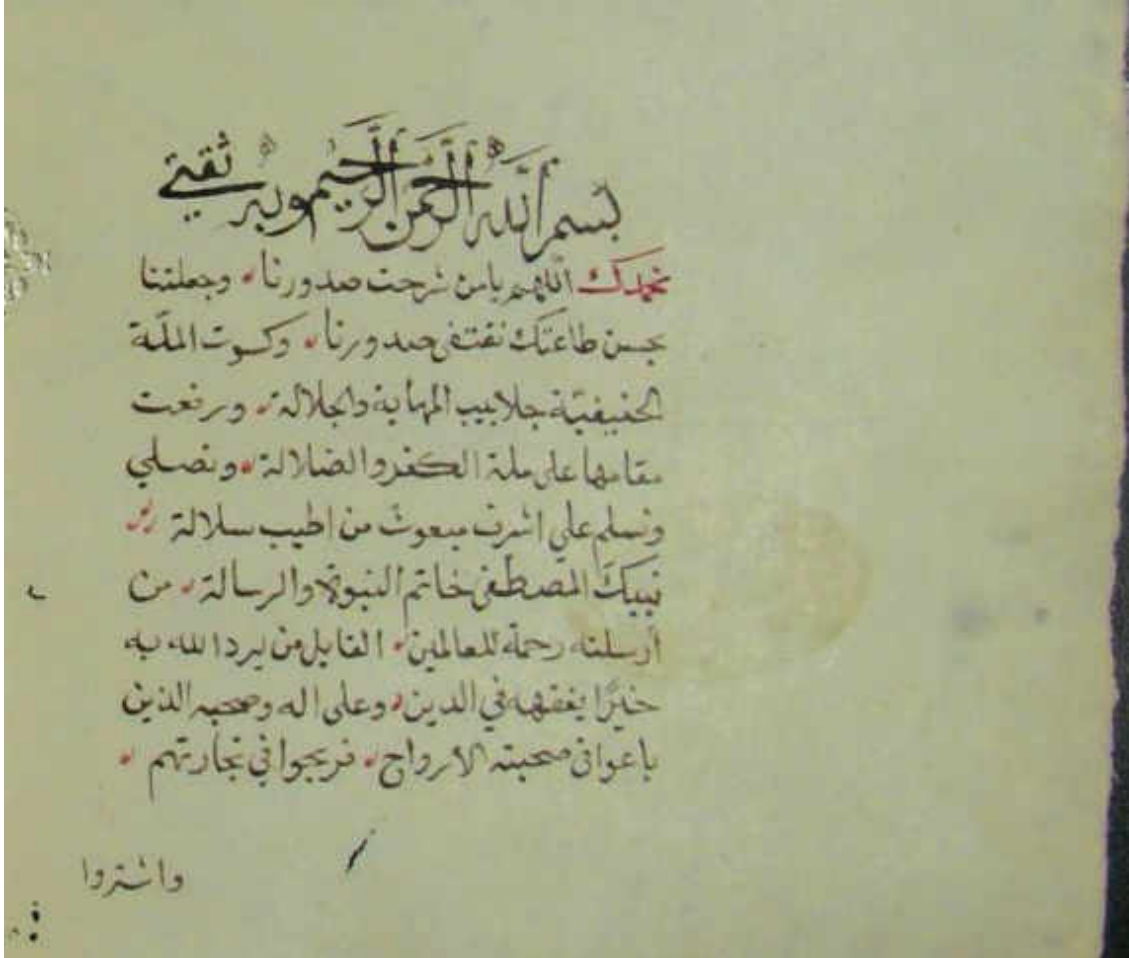 بسم الله الرحمن الرحيم وبه ثقتي
نحمدك اللهم يامن شرحت صدورنا وجعلتنا
بحسن طاعتك نقتفى صدورنا وكسوت الملّة
الحنيفيّة جلابيب المهابة والجلالة ورفعت
مقامها على ملة الكفر والضلالة ونصلي
ونسلم علي اشرف مبعوث من اطيب سلالة
نبيك المصطفى خاتم النبوة والرسالة من
أرسلته رحمة للعالمين القايل من يرد الله به
خيرًا يفقهه في الدين وعلى اله وصحبه الذين
باعوا في صحبته الارواح فربحوا في تجارتهم
واشتروا